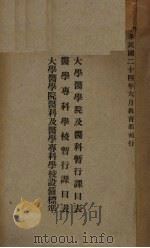 民國二十四年六月教育部刊行
大學醫學院及醫科暫行課目表
醫學專科學校暫行課目表
大學醫學院醫科及醫學專科學校設備標準